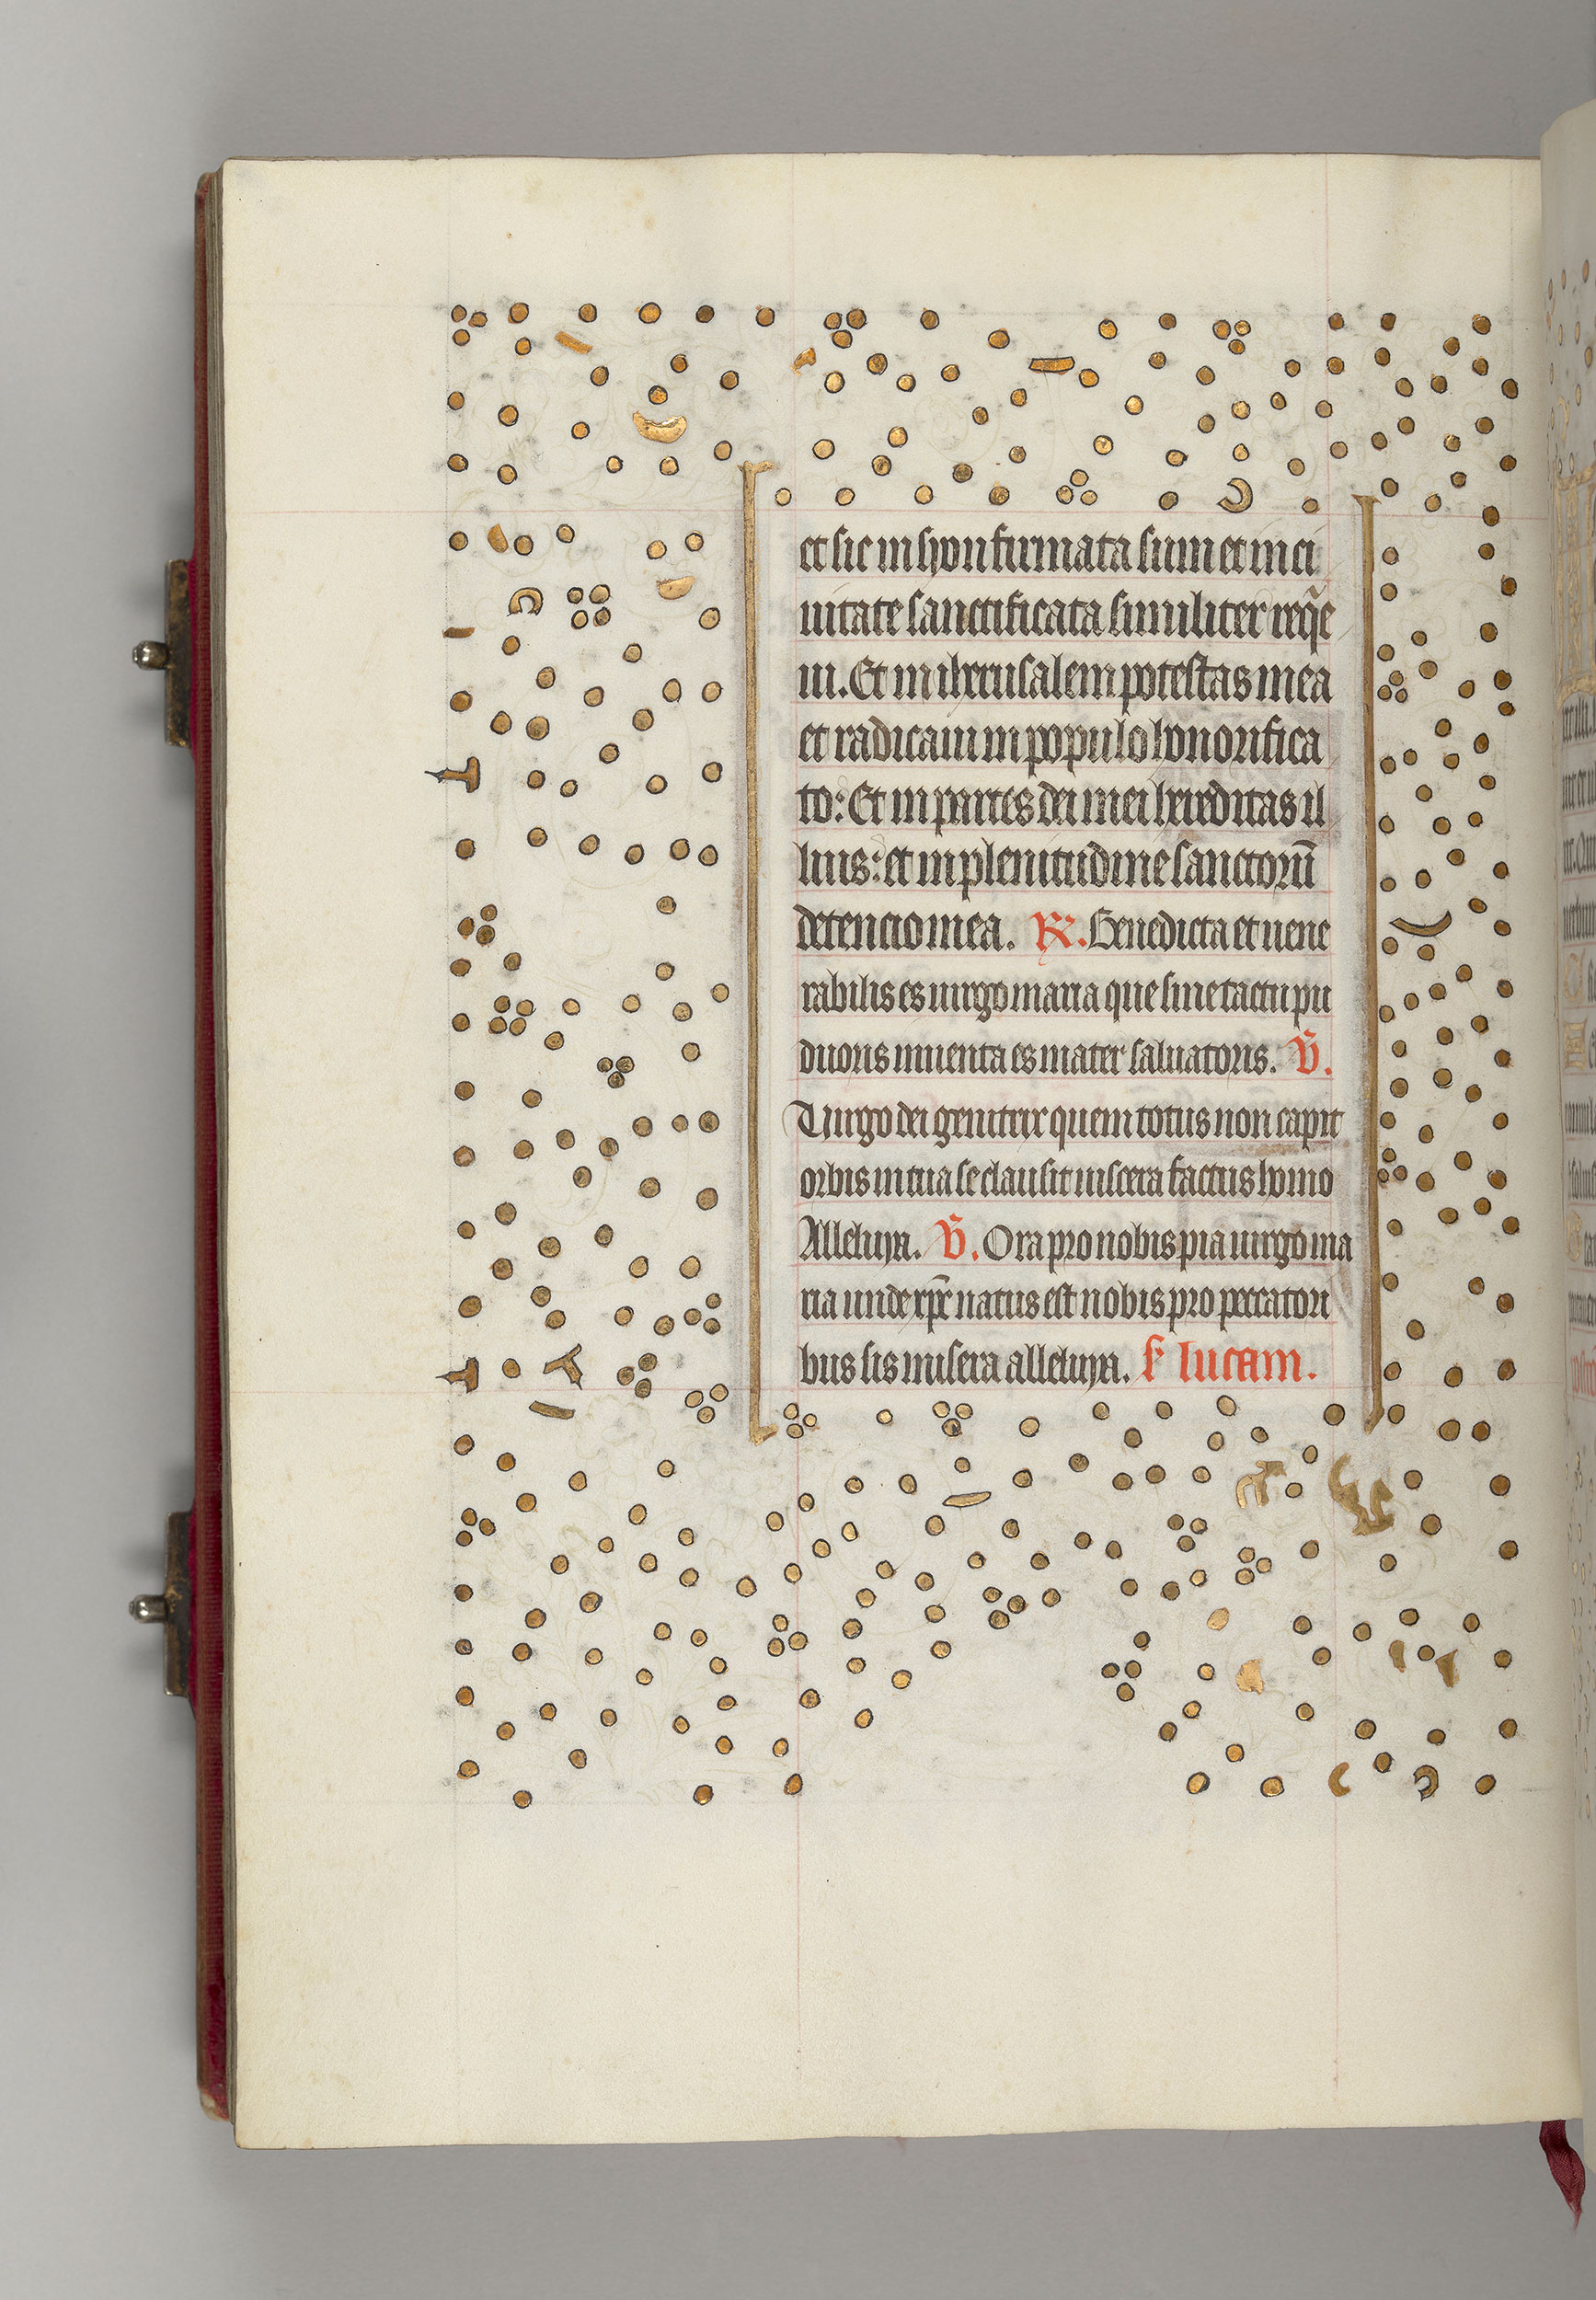 et sic in syon firmata sum et in ci
uitate sanctificata similiter reqͥe
ui. Et in iherusalem potestas mea
et radicaui in populo honorifica
to: Et in partes dei mei hereditas il
lius: et in plenitudine sanctoru̅
detencio mea. R. Benedicta et uene
rabilis es uirgo maria que sine tactu pu
doris inuenta es mater saluatoris. V.
Uirgo dei genitrix quem totus non capit
orbis in tua se clausit uiscera factus homo
Alleluya. V. Ora pro nobis pia uirgo ma
ria unde xp̅c natus est nobis pro peccatori
bus sis misera alleluya. S lucam.